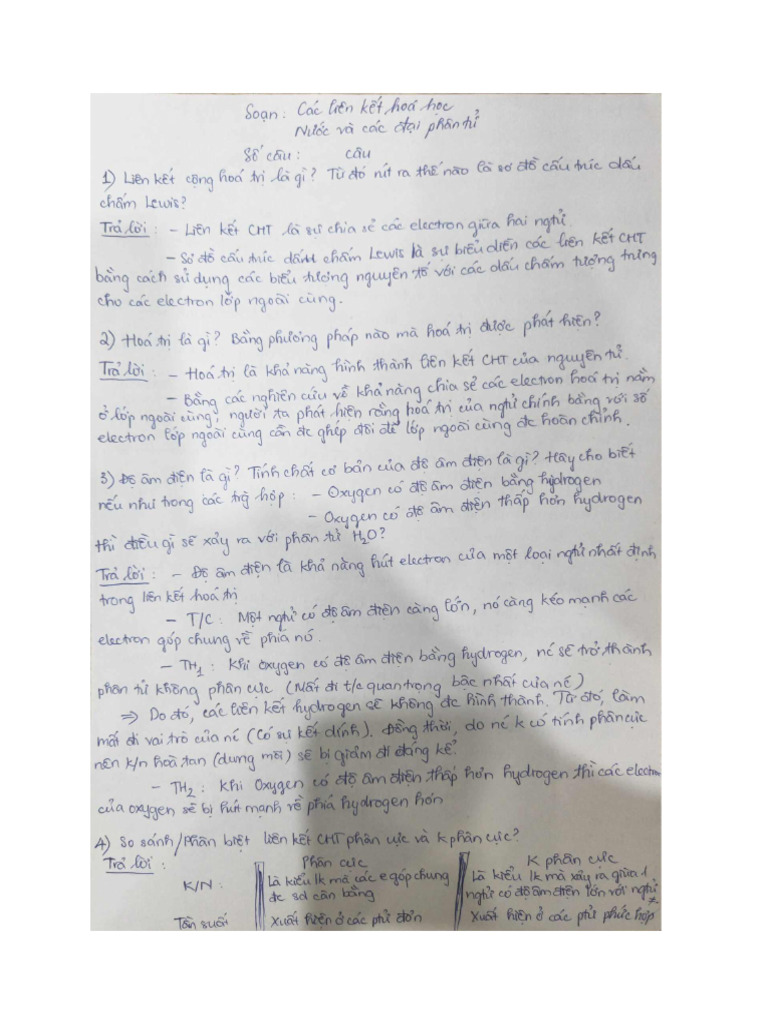 Soạn: Các liên kết hoá học
Nước và các đại phân tử
Số câu: câu
1) Liên kết cộng hoá trị là gì? Từ đó rút ra thế nào là sơ đồ cấu trúc dấu
chấm Lewis?
Trả lời: - Liên kết CHT là sự chia sẻ các electron giữa hai ngtử
- Sơ đồ cấu trúc dấu chấm Lewis là sự biểu diễn các liên kết CHT
bằng cách sử dụng các biểu tượng nguyên tố với các dấu chấm tượng trưng
cho các electron lớp ngoài cùng.
2) Hoá trị là gì? Bằng phương pháp nào mà hoá trị được phát hiện?
Trả lời: - Hoá trị là khả năng hình thành liên kết CHT của nguyên tử.
- Bằng các nghiên cứu về khả năng chia sẻ các electron hoá trị nằm
ở lớp ngoài cùng, người ta phát hiện rằng hoá trị của ngtử chính bằng với số
electron lớp ngoài cùng cần đc ghép đôi để lớp ngoài cùng đc hoàn chỉnh.
3) Độ âm điện là gì? Tính chất cơ bản của độ âm điện là gì? Hãy cho biết
nếu như trong các trg hợp: - Oxygen có độ âm điện bằng hydrogen
- Oxygen có độ âm điện thấp hơn hydrogen
thì điều gì sẽ xảy ra với phân tử H₂O?
Trả lời: - Độ âm điện là khả năng hút electron của một loại ngtử nhất định
trong liên kết hoá trị
- T/C: Một ngtử có độ âm điện càng lớn, nó càng kéo mạnh các
electron góp chung về phía nó.
- TH₁: Khi Oxygen có độ âm điện bằng hydrogen, nc sẽ trở thành
phân tử không phân cực (Mất đi t/c quan trọng bậc nhất của nc)
⇒ Do đó, các liên kết hydrogen sẽ không đc hình thành. Từ đó, làm
mất đi vai trò của nc (Có sự kết dính). Đồng thời, do nc k có tính phân cực
nên k/n hoà tan (dung môi) sẽ bị giảm đi đáng kể.
- TH₂: Khi Oxygen có độ âm điện thấp hơn hydrogen thì các electron
của oxygen sẽ bị hút mạnh về phía hydrogen hơn
4) So sánh/Phân biệt liên kết CHT phân cực và k phân cực?
Trả lời: Phân cực K phân cực
K/N: Là kiểu lk mà các e góp chung Là kiểu lk mà xảy ra giữa 1
đc sd cân bằng ngtử có độ âm điện lớn với ngtử
Tần suất Xuất hiện ở các ptử đơn Xuất hiện ở các ptử phức hợp